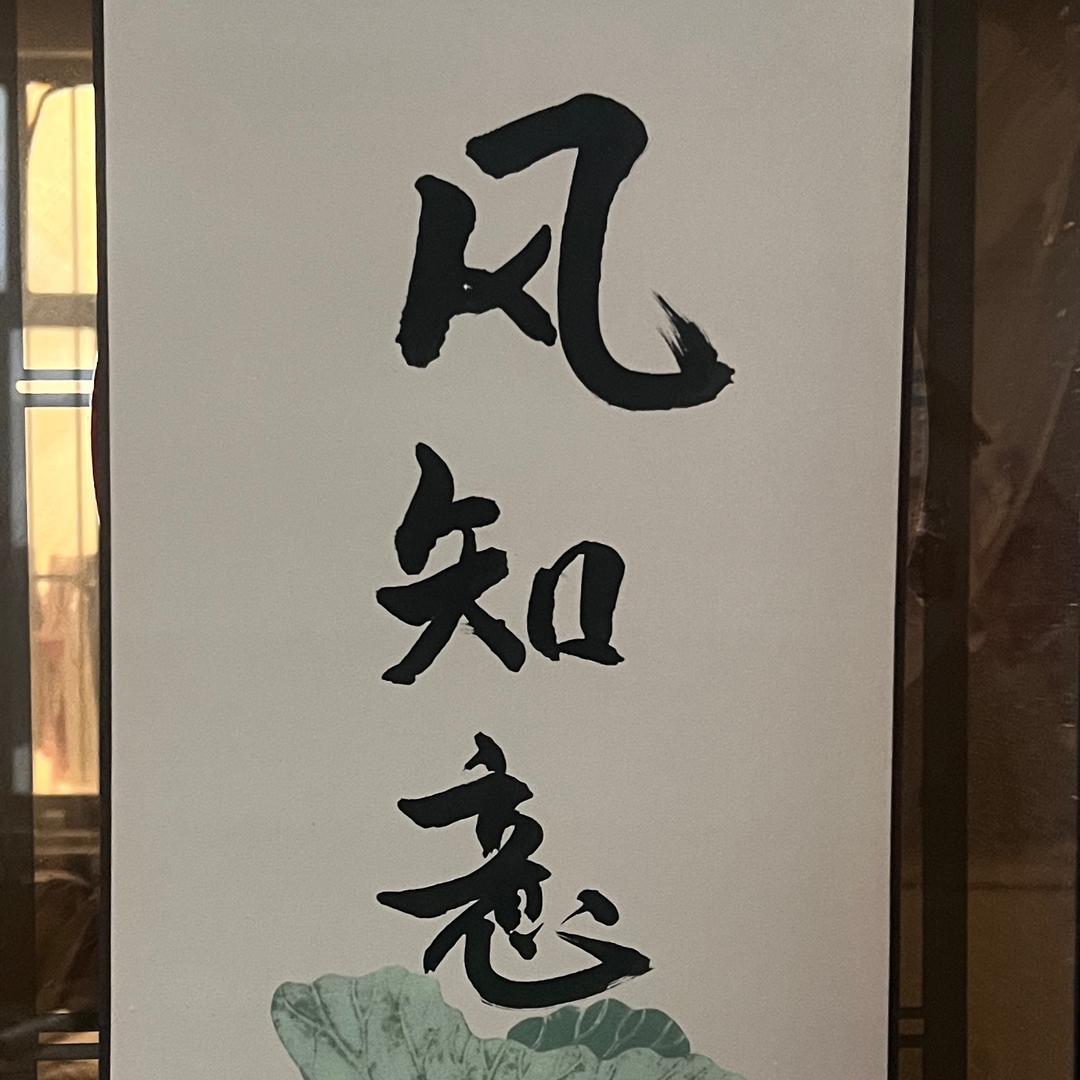 风知意